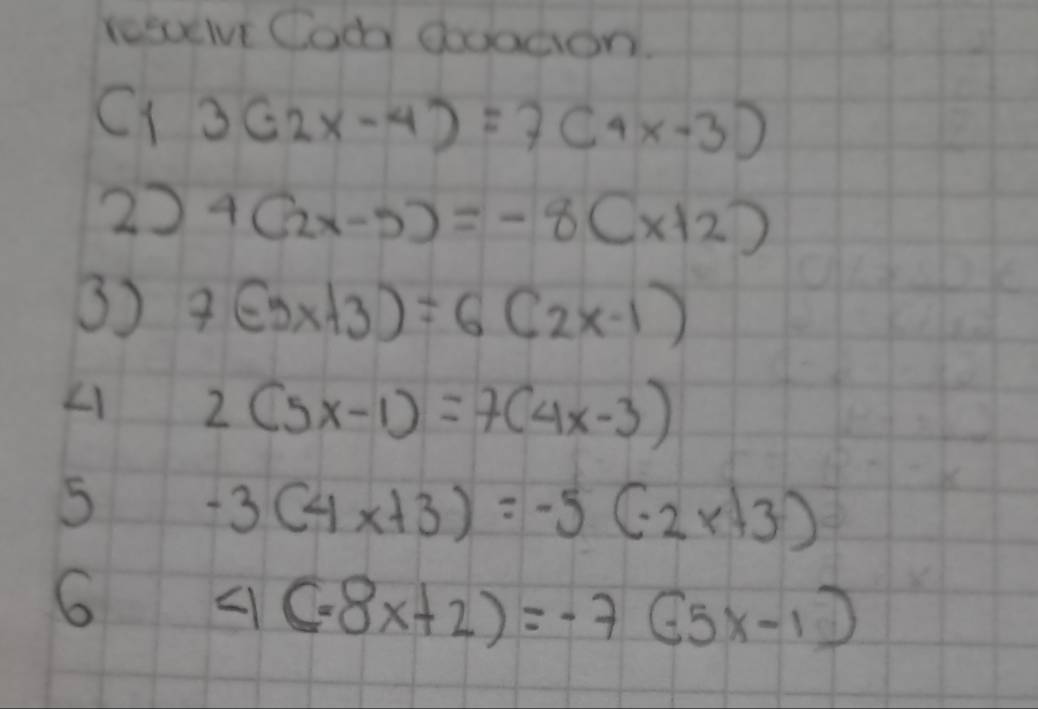 resuelve Cada ecuacion.
(1 3(-2x-4) = 7(4x-3)
2) 4(2x-5) = -8(x+2)
3) 7(-5x+3) = 6(2x-1)
4 2(5x-1) = 7(4x-3)
5 -3(4x+3) = -5(-2x+3)
6 4(-8x+2) = -7(-5x-1)